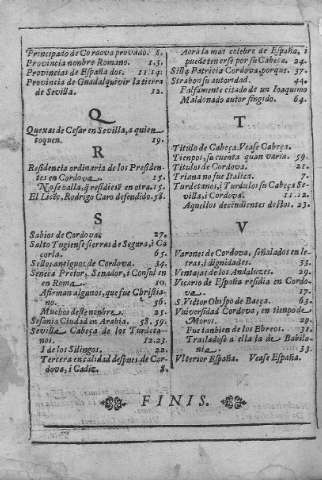 Principado de Cordova provado. 8.
Provincia nombre Romano. 1.5.
Provincias de España dos. 11.14.
Provincia de Guadalquivir la tierra
de Sevilla. 12.
Q
Quexas de Cesar en Sevilla, a quien
toquen. 19.
R
Residencia ordinaria de los Presiden-
tes en Cordova. 15.
No se valla, q̃ residiesẽ en otra. 15.
El Licdo. Rodrigo Caro defendido. 58.
S
Sabios de Cordova. 27.
Salto Tugiense sierras de Segura, i Ca
çorla. 65.
Sellos antiguos de Cordova. 34.
Seneca Pretor, Senador, i Consul en
en Roma. 10.
Afirman algunos, que fue Christia-
no. 56.
Muchos deste nombre. 25.
Sefania Ciudad en Arabia. 58.59.
Sevilla Cabeça de los Turdeta-
nos. 12.23.
I de los Silingos. 22.
Tercera en calidad despues de Cor-
dova, i Cadiz. 8.
Aora la mas celebre de España, i
puede tenerse por su Cabeça. 24.
Silla Patricia Cordova, porque. 37.
Strabon su autoridad. 44.
Falsamente citado de un Ioaquimo
Maldonado autor fingido. 64.
T
Titulo de Cabeça. Vease Cabeça.
Tiempos, su cuenta quan varia. 59.
Titulos de Cordova. 21.
Triana no fue Italica. 7.
Turdetanos, i Turdulos su Cabeça Se-
villa, i Cordova. 11.12.
Aquellos decendientes destos. 23.
V
Varones de Cordova, señalados en le-
tras, i dignidades. 33.
Ventajas de los Andaluzes. 29.
Vicario de España residia en Cordo-
va. 17.
S. Victor Obispo de Baeça. 63.
Vniversidad Cordova, en tiempo de
Moros. 29.
Fue tanbien de los Ebreos. 31.
Trasladose a ella la de Babilo-
nia. 33.
Vlterior España. Vease España.
FINIS.